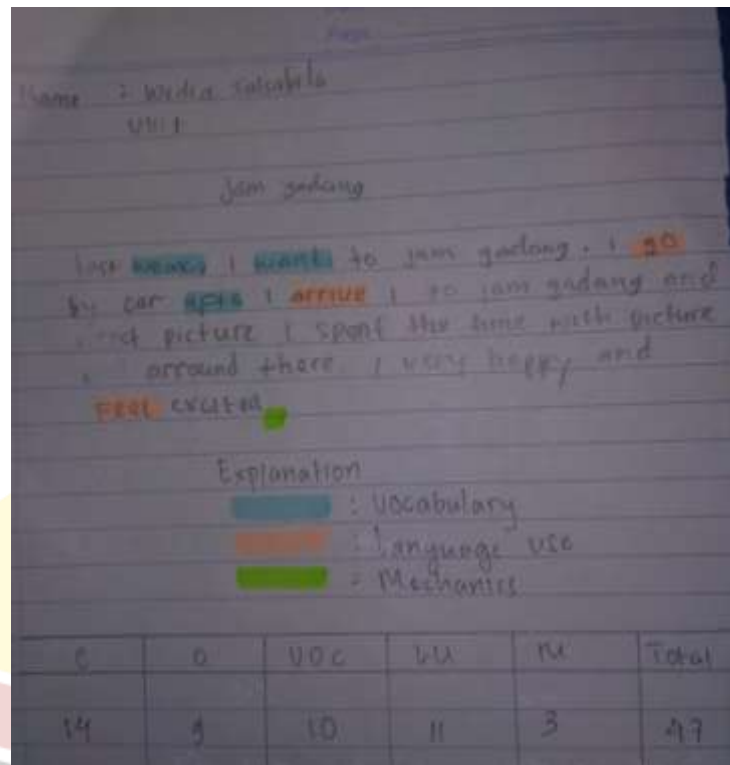 Name :
Jam gadang
last weaks I want to jam gadang. I go
by car apte I arrive I go jam gadang and
picture I spent the time with picture
arround there I very happy and
Feel excited
Explanation
: Vocabulary
: Language use
: Mechanics
C O VOC LU M Total
14 9 10 11 3 47